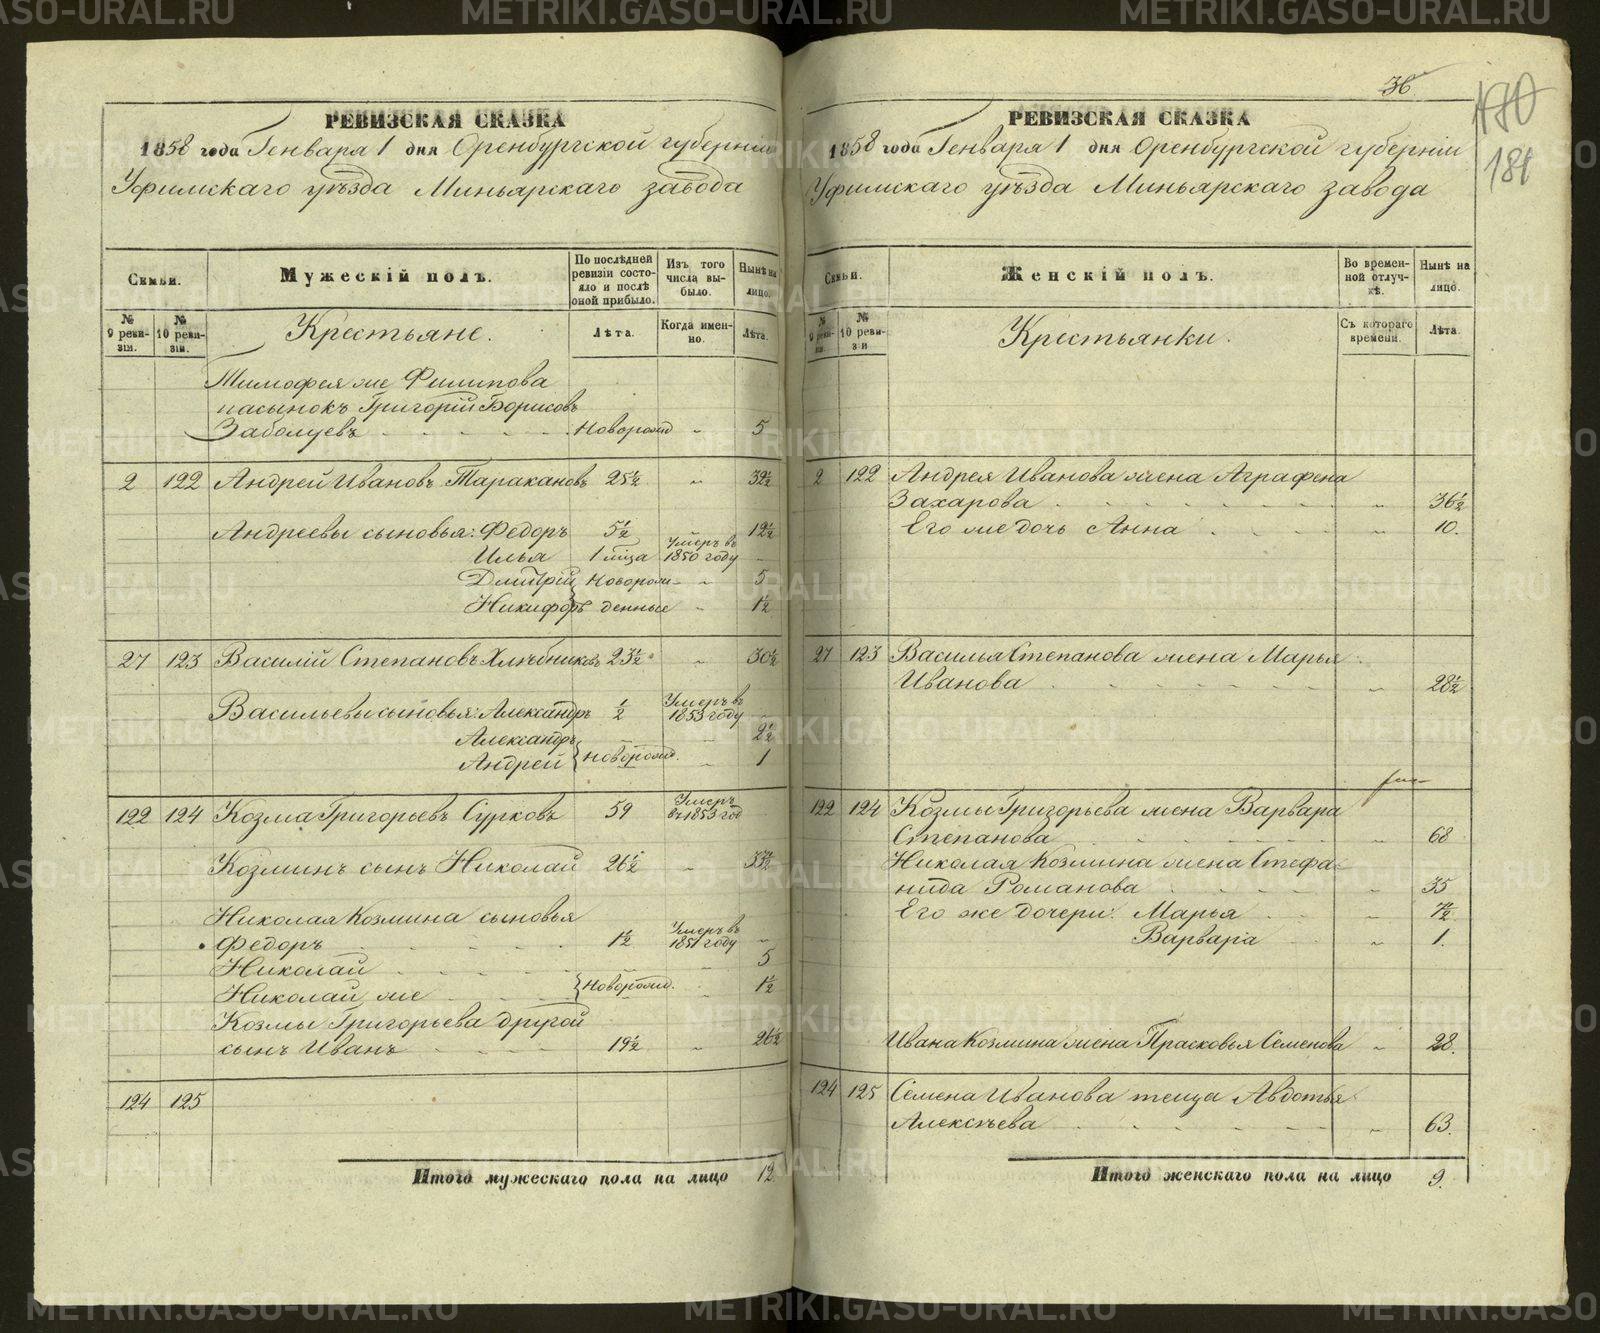 36
180
181
РЕВИЗСКАЯ СКАЗКА
1858 года Генваря 1 дня Оренбургской губерніи
Уфимскаго уѣзда Миньярскаго завода
Семьи.
Мужескій полъ.
По послѣдней ревизіи состояло и послѣ оной прибыло.
Изъ того числа выбыло.
Нынѣ на лицо.
№ 9 ревизіи.
№ 10 ревизіи.
Крестьяне.
Лѣта.
Когда именно.
Лѣта.
Тимофея же Филипова
пасынокъ Григорій Борисовъ
Заболуевъ новорожд " 5
2 122 Андрей Ивановъ Таракановъ 25½ " 32½
Андреевы сыновья: Федоръ 5½ " 12½
Илья 1 мѣца Умеръ въ 1850 году "
Дмитрій новорож- " 5
Никифоръ денные " 1½
27 123 Василій Степановъ Хлѣбниковъ 23½ " 30½
Васильевы сыновья: Александръ ½ Умеръ въ 1853 году
Александръ " 2½
Андрей новорожд. " 1
122 124 Козма Григорьевъ Сурковъ 59 Умеръ въ 1853 год
Козминъ сынъ Николай 26½ " 33½
Николая Козмина сыновья
Федоръ 1½ Умеръ въ 1851 году "
Николай 5
Николай же новорожд. 1½
Козмы Григорьева другой
сынъ Иванъ 19½ " 26½
124 125
Итого мужескаго пола на лицо 12
РЕВИЗСКАЯ СКАЗКА
1858 года Генваря 1 дня Оренбургской губерніи
Уфимскаго уѣзда Миньярскаго завода
Семьи.
Женскій полъ.
Во временной отлучкѣ.
Нынѣ на лицо.
№ 9 ревизіи.
№ 10 ревизи
Крестьянки.
Съ котораго времени.
Лѣта.
2 122 Андрея Иванова жена Аграфена
Захарова " 36½
Его же дочь Анна " 10.
27 123 Василья Степанова жена Марья
Иванова " 28½
122 124 Козмы Григорьева жена Варвара
Степанова " 68
Николая Козмина жена Стефа-
нида Романова " 35
Его же дочери: Марья " 7½
Варвара " 1.
Ивана Козмина жена Прасковья Семенова " 28.
124 125 Семена Иванова теща Авдотья
Алексѣева " 63.
Итого женскаго пола на лицо 9.
METRIKI.GASO-URAL.RU